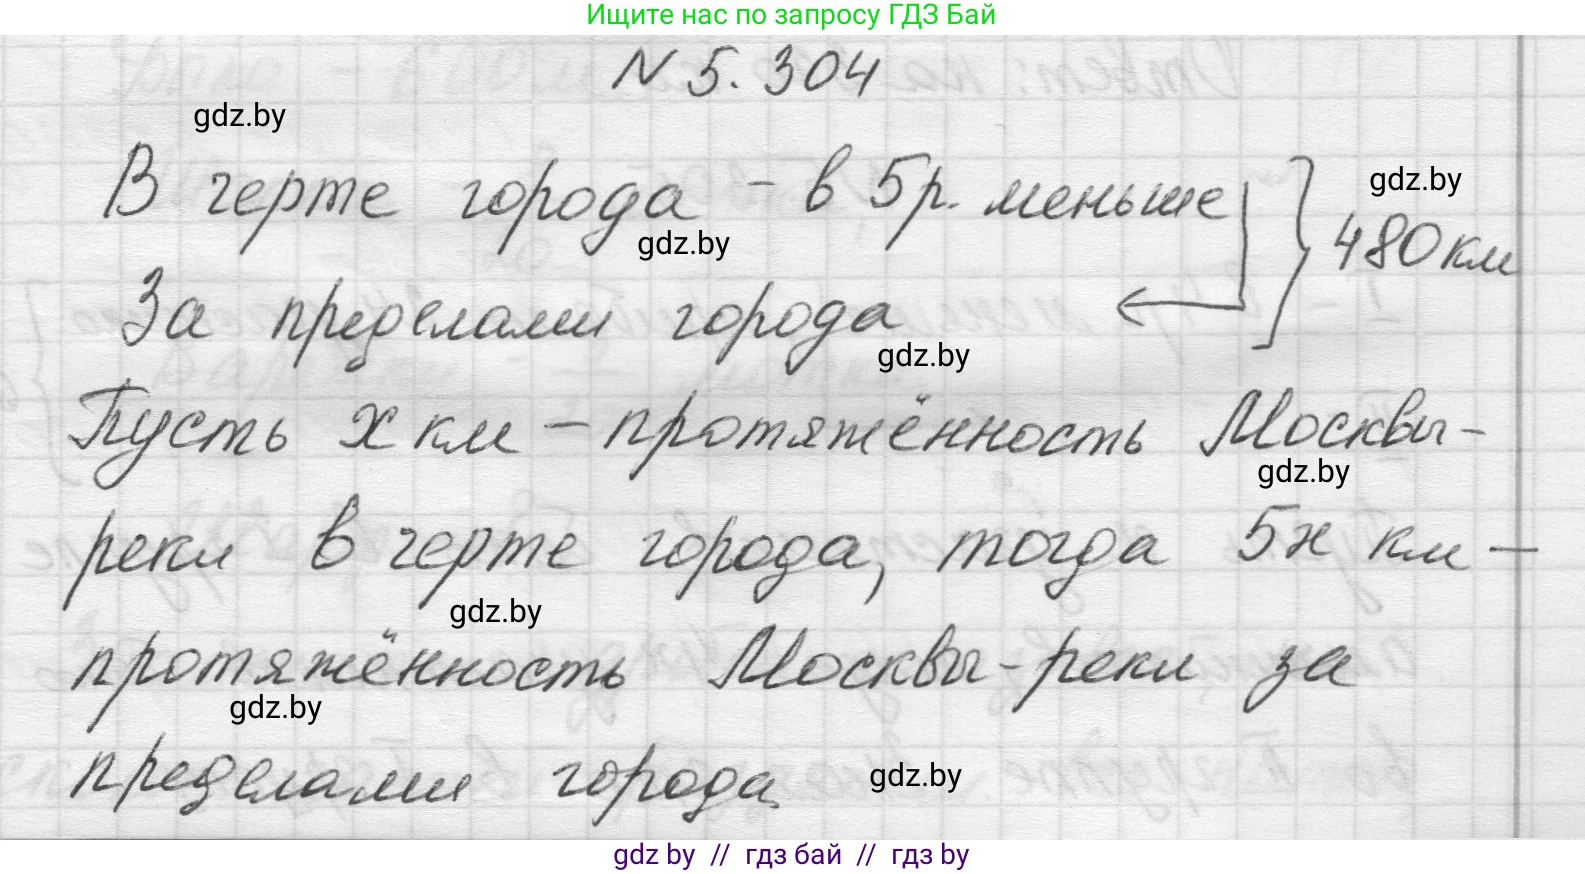 Ищите нас по запросу ГДЗ Бай
N 5.304
gdz.by
В черте города - в 5 р. меньше
gdz.by
480 км
gdz.by
За пределами города
gdz.by
Пусть x км - протяжённость Москвы-
gdz.by
реки в черте города, тогда 5x км -
gdz.by
протяжённость Москвы-реки за
gdz.by
пределами города
gdz.by
gdz by // гдз бай // гдз by